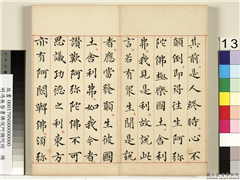 其前是人終時心不
顛倒即得往生阿彌
陀佛極樂國土舍利
弗我見是利故說此
言若有衆生聞是說
者應當發願生彼國
土舍利弗如我今者
讚歎阿彌陀佛不可
思議功德之利東方
亦有阿閦鞞佛須彌
13